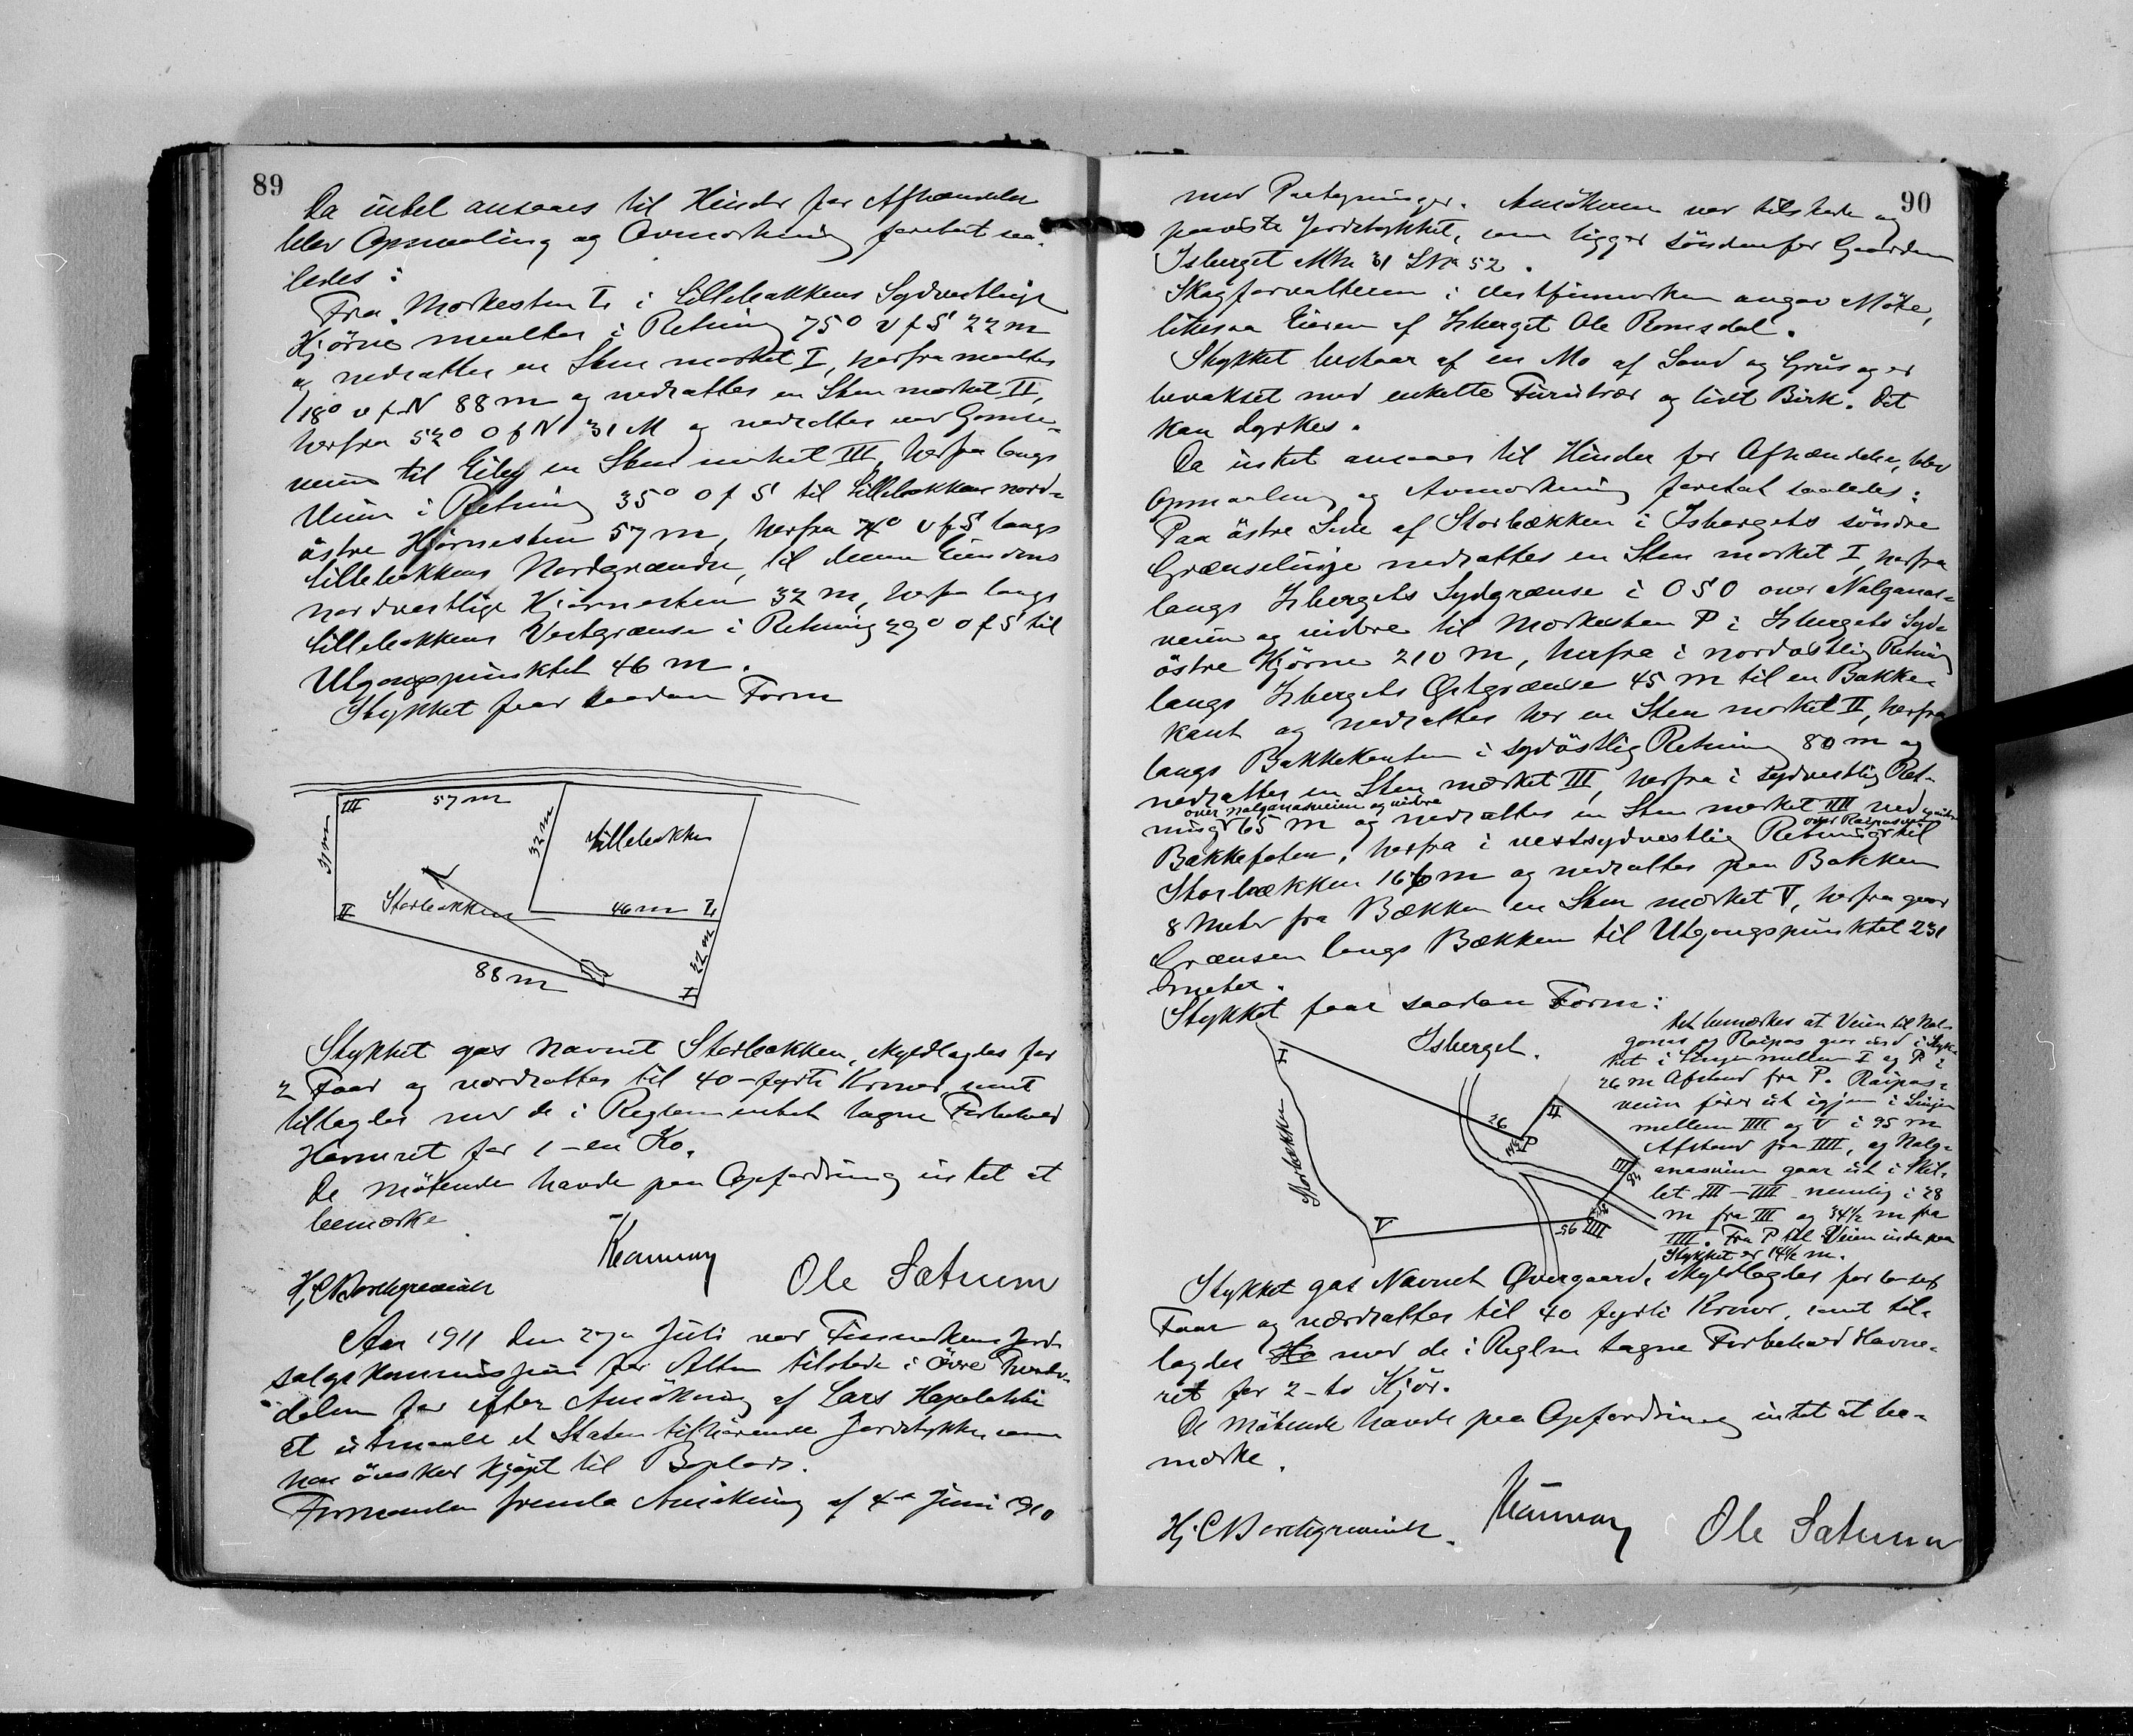 89
Da intet ansaaes til Hinder for Afhændelse
blev Opmaaling og Avmerkning foretat saa-
ledes:
Fra Merkesten L i Lillebakkens Sydvestlige
Hjörne maaltes i Retning 75° v f S 22 m
og nedsattes en Sten merket I, herfra maaltes
18° v f N 88 m og nedsattes en Sten merket II,
herfra 52° O f N 31 M og nedsattes ved
veien til Eiby en Sten merket III, herfra langs
Veien i Retning 35° O f S til Lillebakkens nord-
östre Hjörnesten 57 m, herfra 74° v f S langs
Lillebakkens Nordgrændse, til denne Eiendoms
nordvestlige Hjörnesten 32 m, herfra langs
Lillebakkens Vestgrænse i Retning 29° O f S til
Utgangspunktet 46 m.
Stykket faar saadan Form
III 57 m
31 m
32 m
Lillebakken
II Storbakken 46 m L
22 m
88 m
I
Stykket gas Navnet Storbakken, skyldlagdes for
2 Faar og værdsattes til 40 - fyrti Kroner, samt
tillagdes med de i Reglementet tagne Forbehold
Havneret for 1 - en Ko.
De mötende havde paa Opfordring intet at
bemerke
Ole Sætrum
Aar 1911 den 27de Juli var Finmarkens Jord-
salgskommission for Alten tilstede i Övre
dalen for efter Ansökning af Lars
at utmaale et Staten tilhörende Jordstykke som
han önsker kjöpt til Boplads.
Formanden fremla Ansökning af 4de Juni 1910
90
med Paategninger. Ansökeren var tilstede og
paaviste Jordstykket, som ligger söndenfor Gaarden
Isberget MNr 31 LNr 52.
Skogforvalteren i Vestfinmarken angav Möte,
likesaa Eieren af Isberget Ole Romsdal.
Stykket bestaar af en Mo af Sand og Grus og er
bevokset med enkelte Furutrær og lidt Birk. Det
kan dyrkes.
Da intet ansaaes til Hinder for Afhændelse, blev
Opmaaling og Avmerkning foretat saaledes:
Paa östre Side af Storbækken i Isbergets söndre
Grænselinje nedsattes en Sten merket I, herfra
langs Isbergets Sydgrænse i O S O over Nalganas-
veien og videre til Merkesten P i Isbergets Syd-
östre Hjörne 210 m, herfra i nordöstlig Retning
langs Isbergets Østgrænse 45 m til en Bakke-
kant og nedsattes her en Sten merket II, herfra
langs Bakkekanten i sydöstlig Retning 80 m og
nedsattes en Sten merket III, herfra i sydvestlig Ret-
over Nalganasveien og videre
ning 65 m og nedsattes en Sten merket IIII ved
over Raipasveien og videre
Bakkefoten, herfra i vestsydvestlig Retning til
Storbækken 166 m og nedsattes paa Bakken
8 Meter fra Bækken en Sten merket V, herfra gaar
Grænsen langs Bækken til Utgangspunktet 231
meter.
Stykket faar saadan Form:
Det bemerkes at Veien til Nal-
ganas og Raipas gaar ind i Styk-
ket i Linjen mellem I og P i
26 m Afstand fra P. Raipas-
veien förer ut igjen i Linjen
mellem IIII og V i 95 m
Afstand fra IIII, og Nalg-
anasveien gaar ut i Skil-
let III - IIII nemlig i 28
m fra III og 34½ m fra
IIII. Fra P til Veien inde paa
Stykket er 14½ m.
Isberget.
I
26
P
II
III
28
Storbækken
V
95 IIII
Stykket gas Navnet Øvergaard, skyldlagdes for
Faar og værdsattes til 40 fyrti Kroner, samt til-
lagdes Ha med de i Reglm tagne Forbehold Havne-
ret for 2 - to Kjör.
De mötende havde paa Opfordring intet at be-
merke.
Ole Sætrum